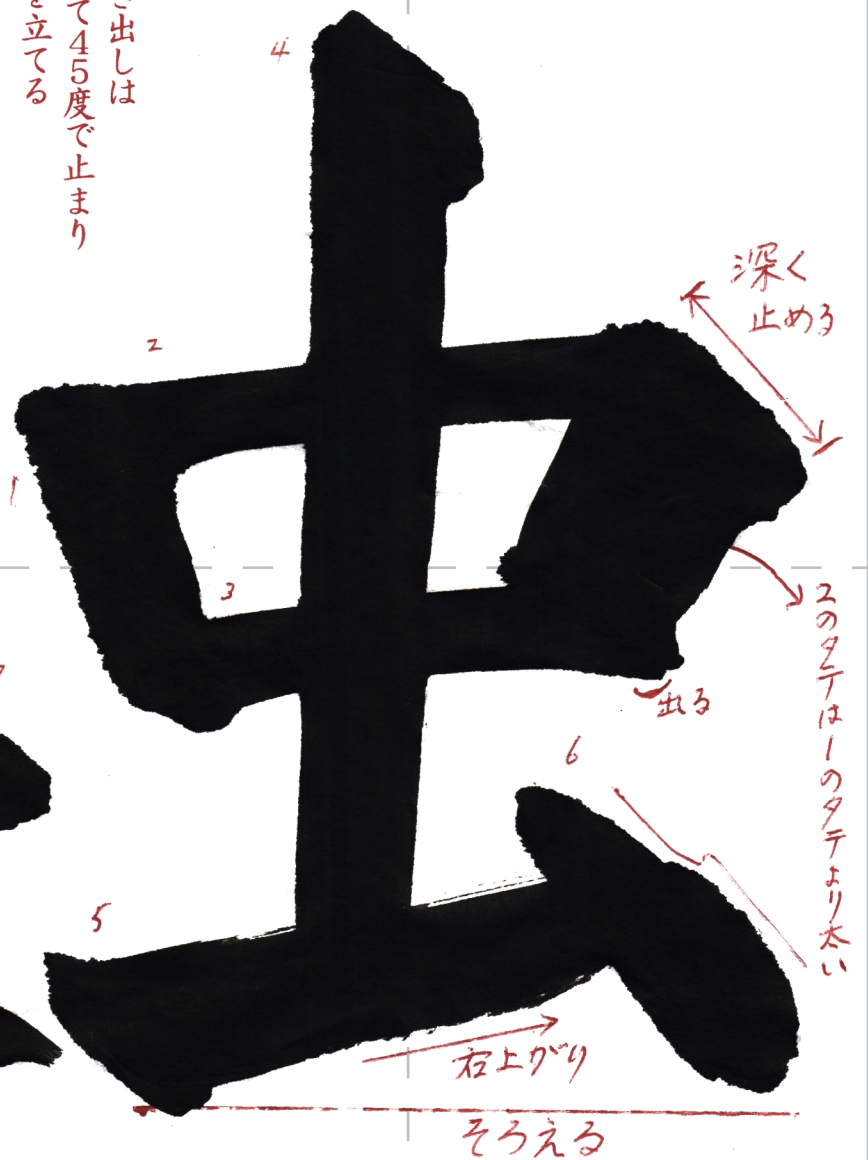 出しは
て45度で止まり
を立てる
虫
1
2
3
4
5
6
深く
止める
2のタテは1のタテより太い
出る
右上がり
そろえる